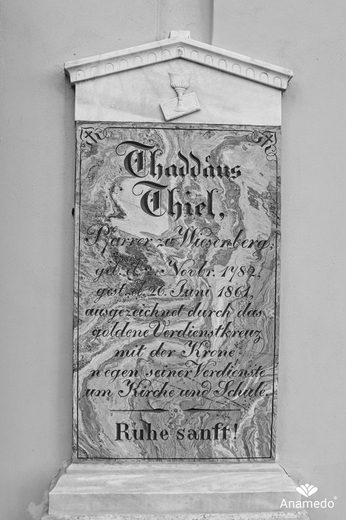 Thaddäus
Thiel,
Pfarrer zu Wiesenberg;
geb. d. Novbr. 1782,
gest. d. 20. Juni 1861,
ausgezeichnet durch das
goldene Verdienstkreuz
mit der Krone
wegen seiner Verdienste
um Kirche und Schule.
Ruhe sanft!
Anamedo